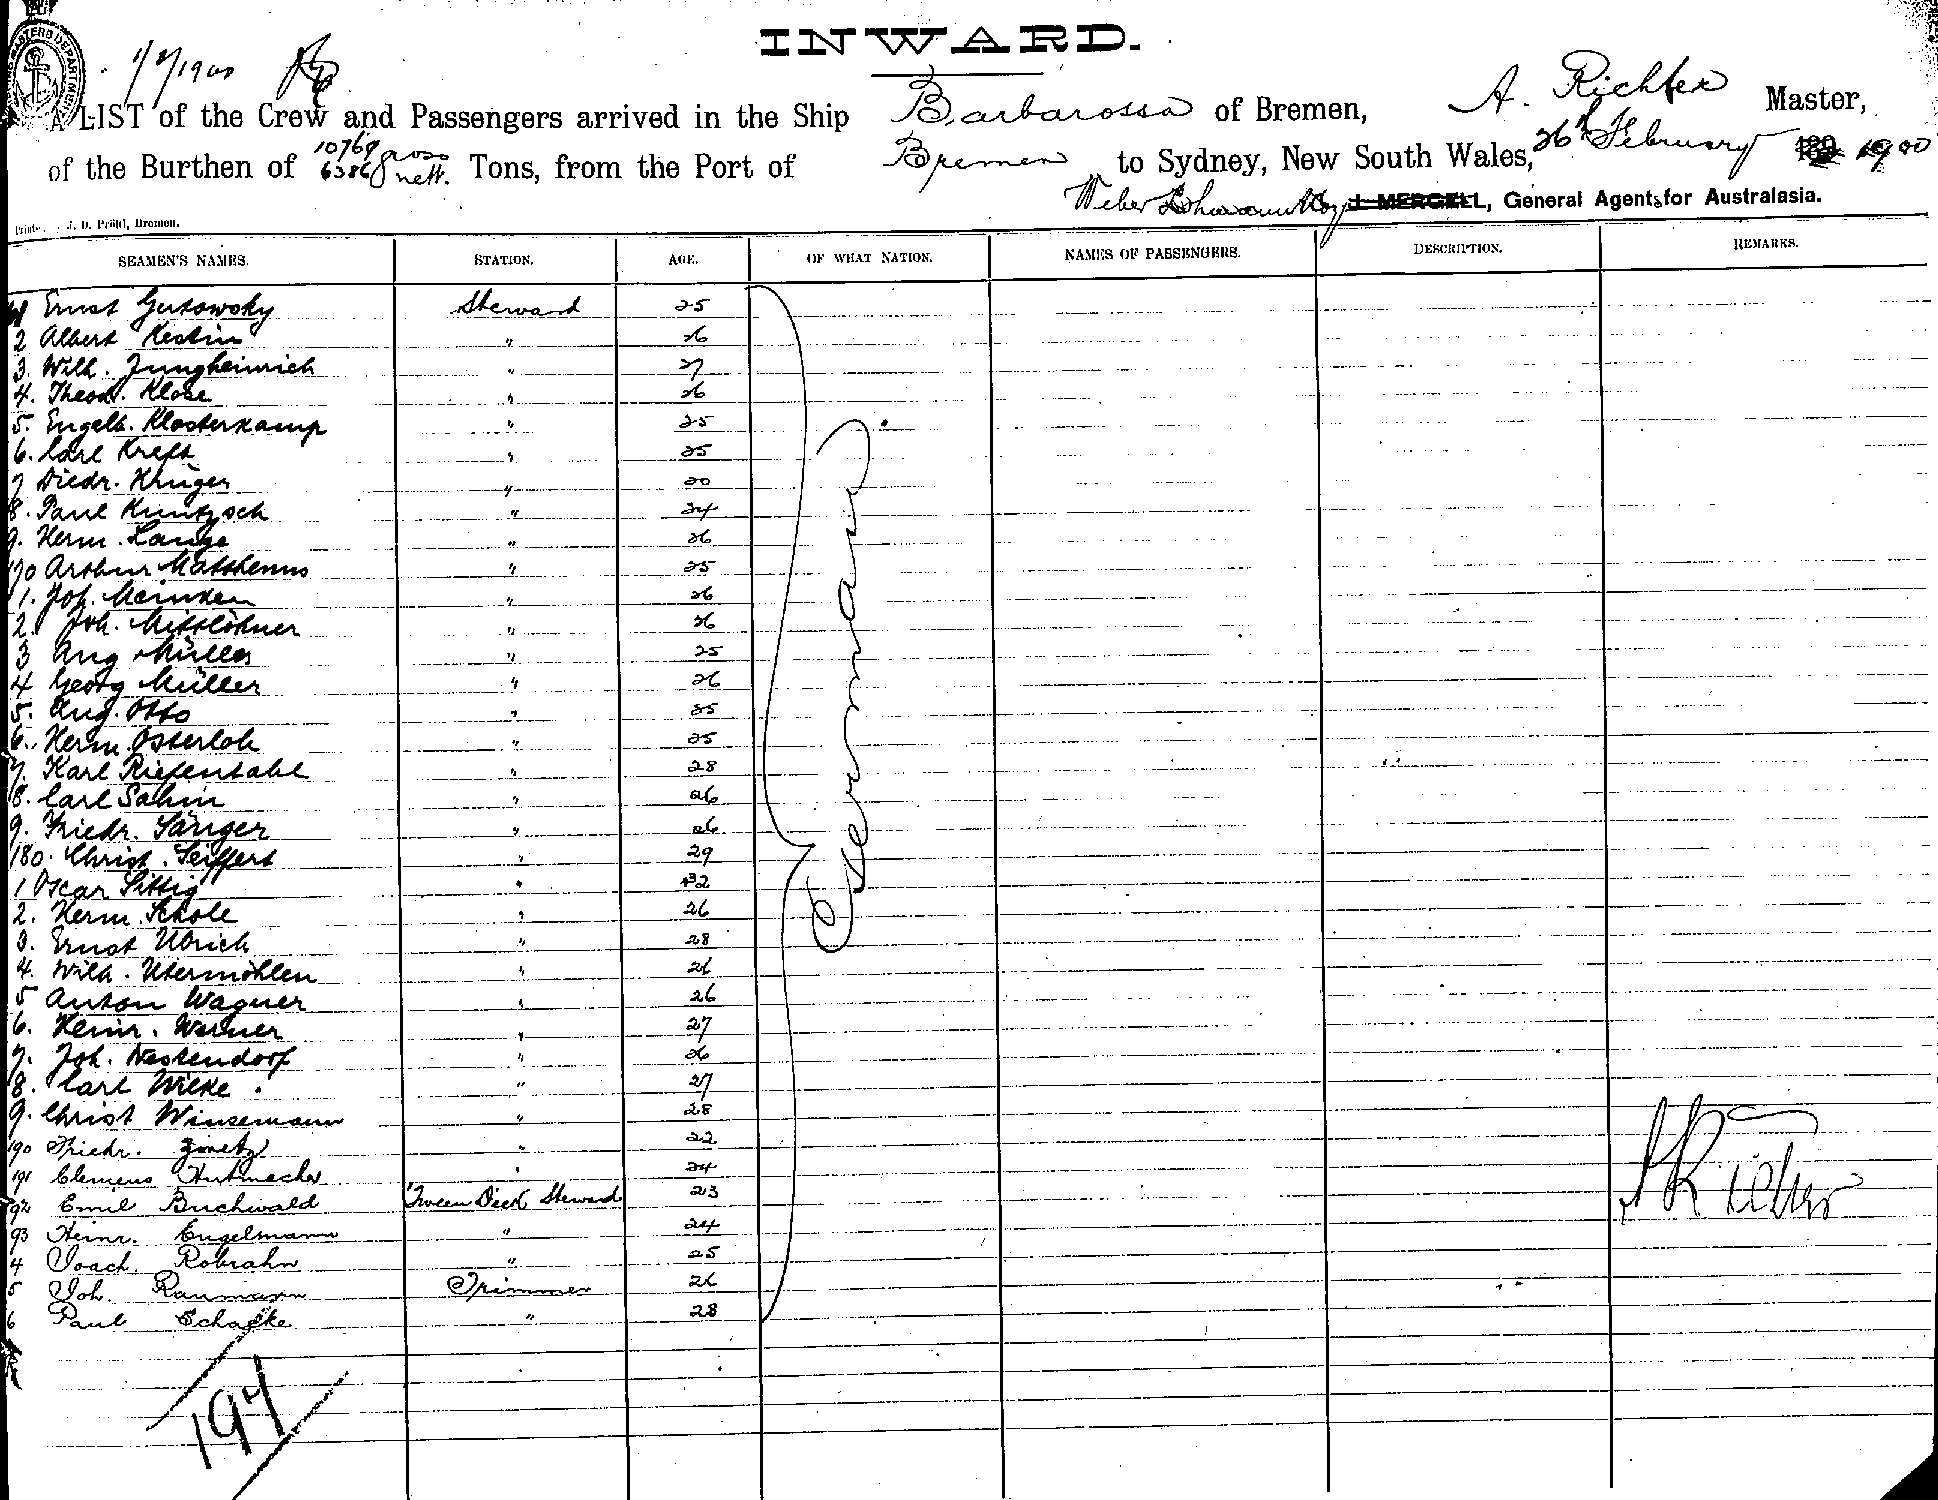 INWARD.
1/2/1900
A LIST of the Crew and Passengers arrived in the Ship Barbarossa of Bremen, A. Richter Master,
of the Burthen of 10769 gross 6386 nett. Tons, from the Port of Bremen to Sydney, New South Wales, 26th February 1900
Weber Lohmann & Co J. MERGELL, General Agents for Australasia.
J. D. Bremen.
SEAMEN'S NAMES. STATION. AGE. OF WHAT NATION. NAMES OF PASSENGERS. DESCRIPTION. REMARKS.
Ernst Gutowsky Steward 25
2 Albert Kestin " 26
3. Wilh. Jungheinrich " 27
4. Theod. Klose " 26
5. Engelb. Klosterkamp " 25
6. Carl Kreft " 25
7 Diedr. Krüger " 20
8. Paul Kuntzsch " 24
9. Herm. Lange " 26
170 Arthur Matthenus " 25
1. Joh. Meinken " 26
2. Joh. Mittlöhner " 26
3 Aug Müller " 25
4 Georg Müller " 26
5. Aug. Otto " 25
6. Herm. Osterloh " 25
7. Karl Riefenstahl " 28
8. Carl Sahm " 26
9. Friedr. Sänger " 26
180. Christ. Seiffert " 29
1 Oscar Sittig " 32
2. Herm. Schole " 26
3. Ernst Ulrich " 28
4. Wilh. Utermöhlen " 26
5 Anton Wagner " 26
6. Heinr. Werner " 27
7. Joh. Westendorf " 26
8. Carl Wilke " 27
9. Christ Winzemann " 28
190 Friedr. Zmetz " 22
191 Clemens Hutmacher " 24
92 Emil Buchwald Tween Deck Steward 23
93 Heinr. Engelmann " 24
4 Joach. Robrahn " 25
5 Joh. Raumann Trimmer 26
6 Paul Schacke " 28
German
A Richter
197